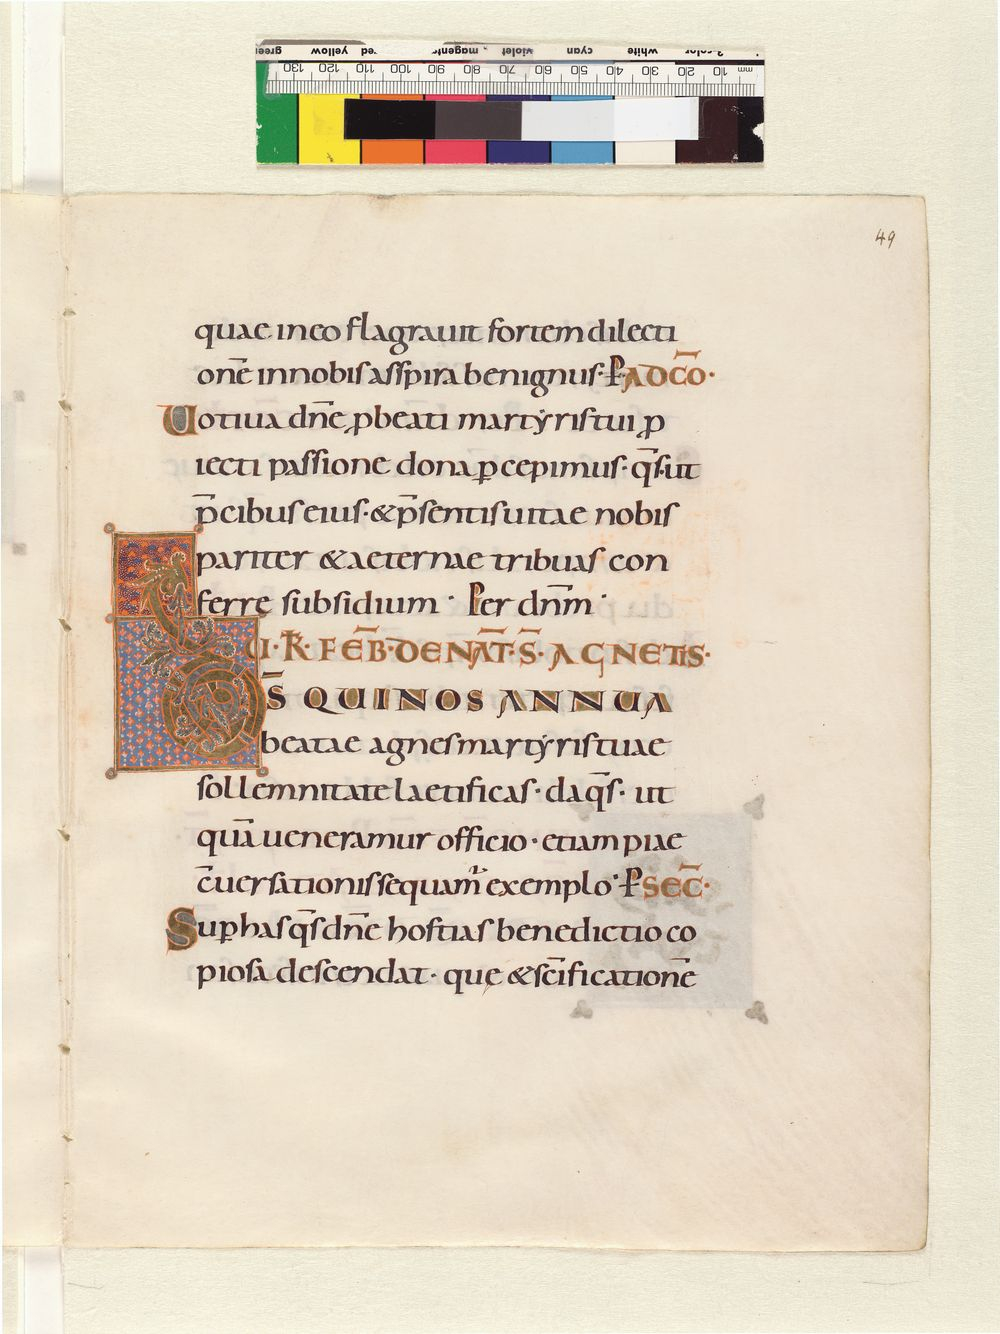 green yellow red magenta violet cyan white 3-color
130 120 110 100 90 80 70 60 50 40 30 20 10 mm
49
quae ineo flagrauit fortem dilecti
onē innobis asspira benignus· P̲ ADCŌ·
Uotiua dn̄e ꝓbeati martẏris tui ꝓ
iecti passione dona ꝑcepimus· q̄s· ut
p̄cibus eius· & p̄sentis uitae nobis
pariter & aeternae tribuas con
ferre subsidium· Per dn̄m·
U·I·K̄· FEB̄· DE NAT̄· S̄· AGNETIS·
D̄S QUI NOS ANNUA
beatae agnes martẏris tuae
sollemnitate laetificas· da q̄s· ut
quā ueneramur officio· etiam piae
c̄uersationis sequamr exemplo· P̲ SEC̄·
Suꝑ has q̄s dn̄e hostias benedictio co
piosa descendat· quę & sc̄ificationē